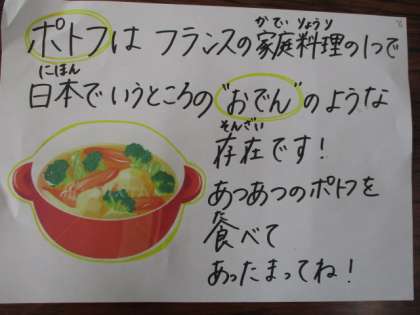 かてい りょうり
ポトフは フランスの家庭料理の1つで
にほん
日本でいうところの"おでん"のような
そんざい
存在です!
あつあつのポトフを
た
食べて
あったまってね!